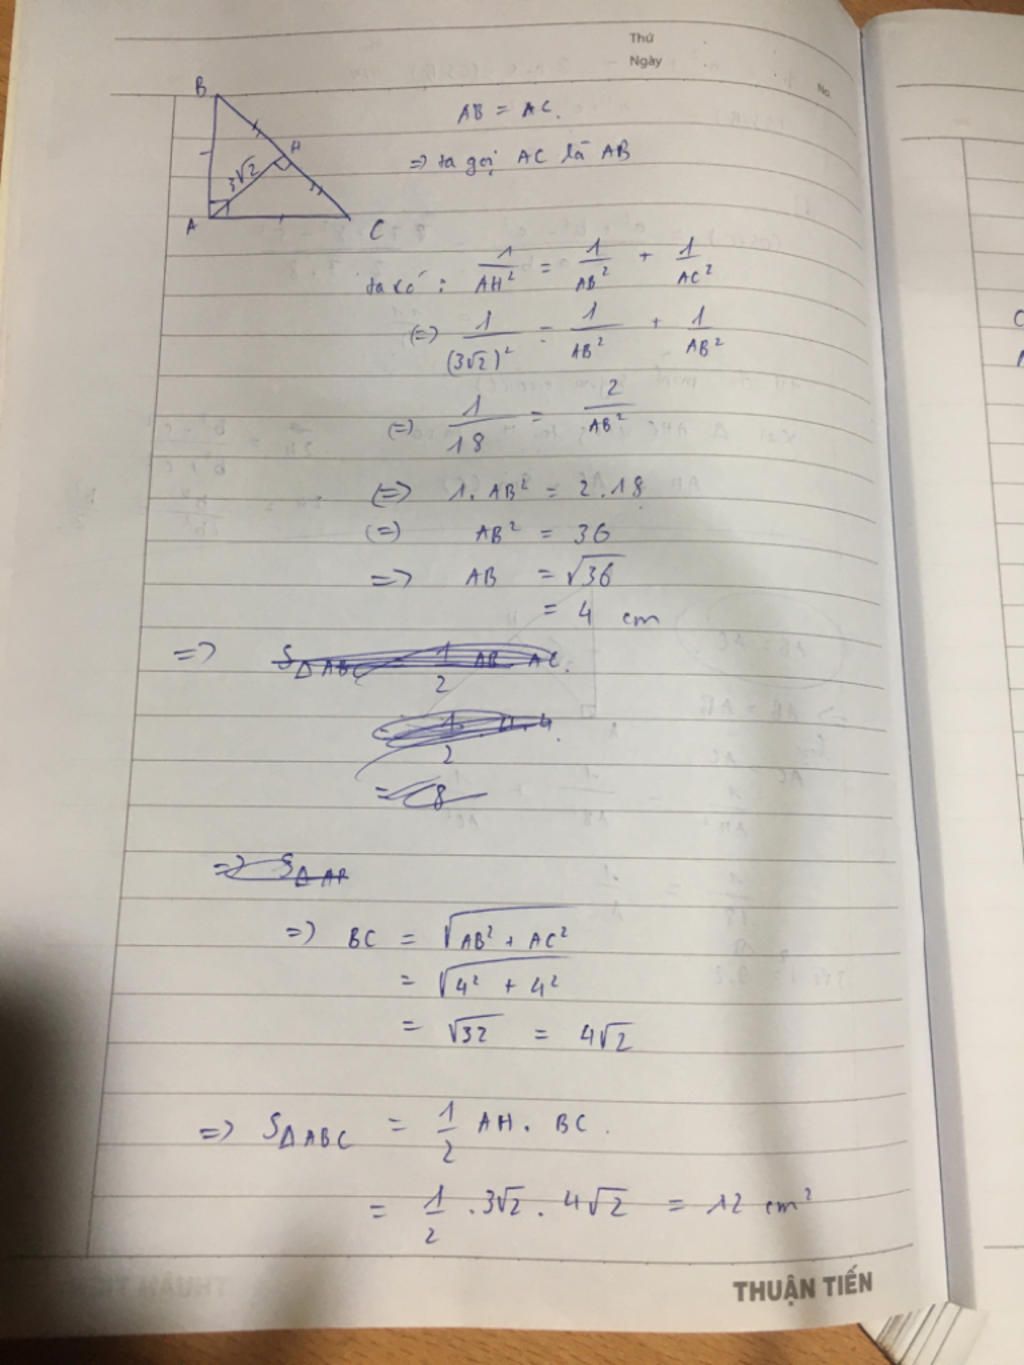 Thứ
Ngày
No.
B
H
3√2
A
C
AB = AC.
=> ta gọi AC là AB
ta có: 1/AH² = 1/AB² + 1/AC²
(=) 1/(3√2)² = 1/AB² + 1/AB²
(=) 1/18 = 2/AB²
(=) 1. AB² = 2.18
(=) AB² = 36
=> AB = √36
= 4 cm
=> S△ABC = 1/2 AB AC.
= 1/2 . 4.4.
= 8
=> S△AB
=> BC = √AB² + AC²
= √4² + 4²
= √32 = 4√2
=> S△ABC = 1/2 AH. BC.
= 1/2 . 3√2 . 4√2 = 12 cm²
THUẬN TIẾN